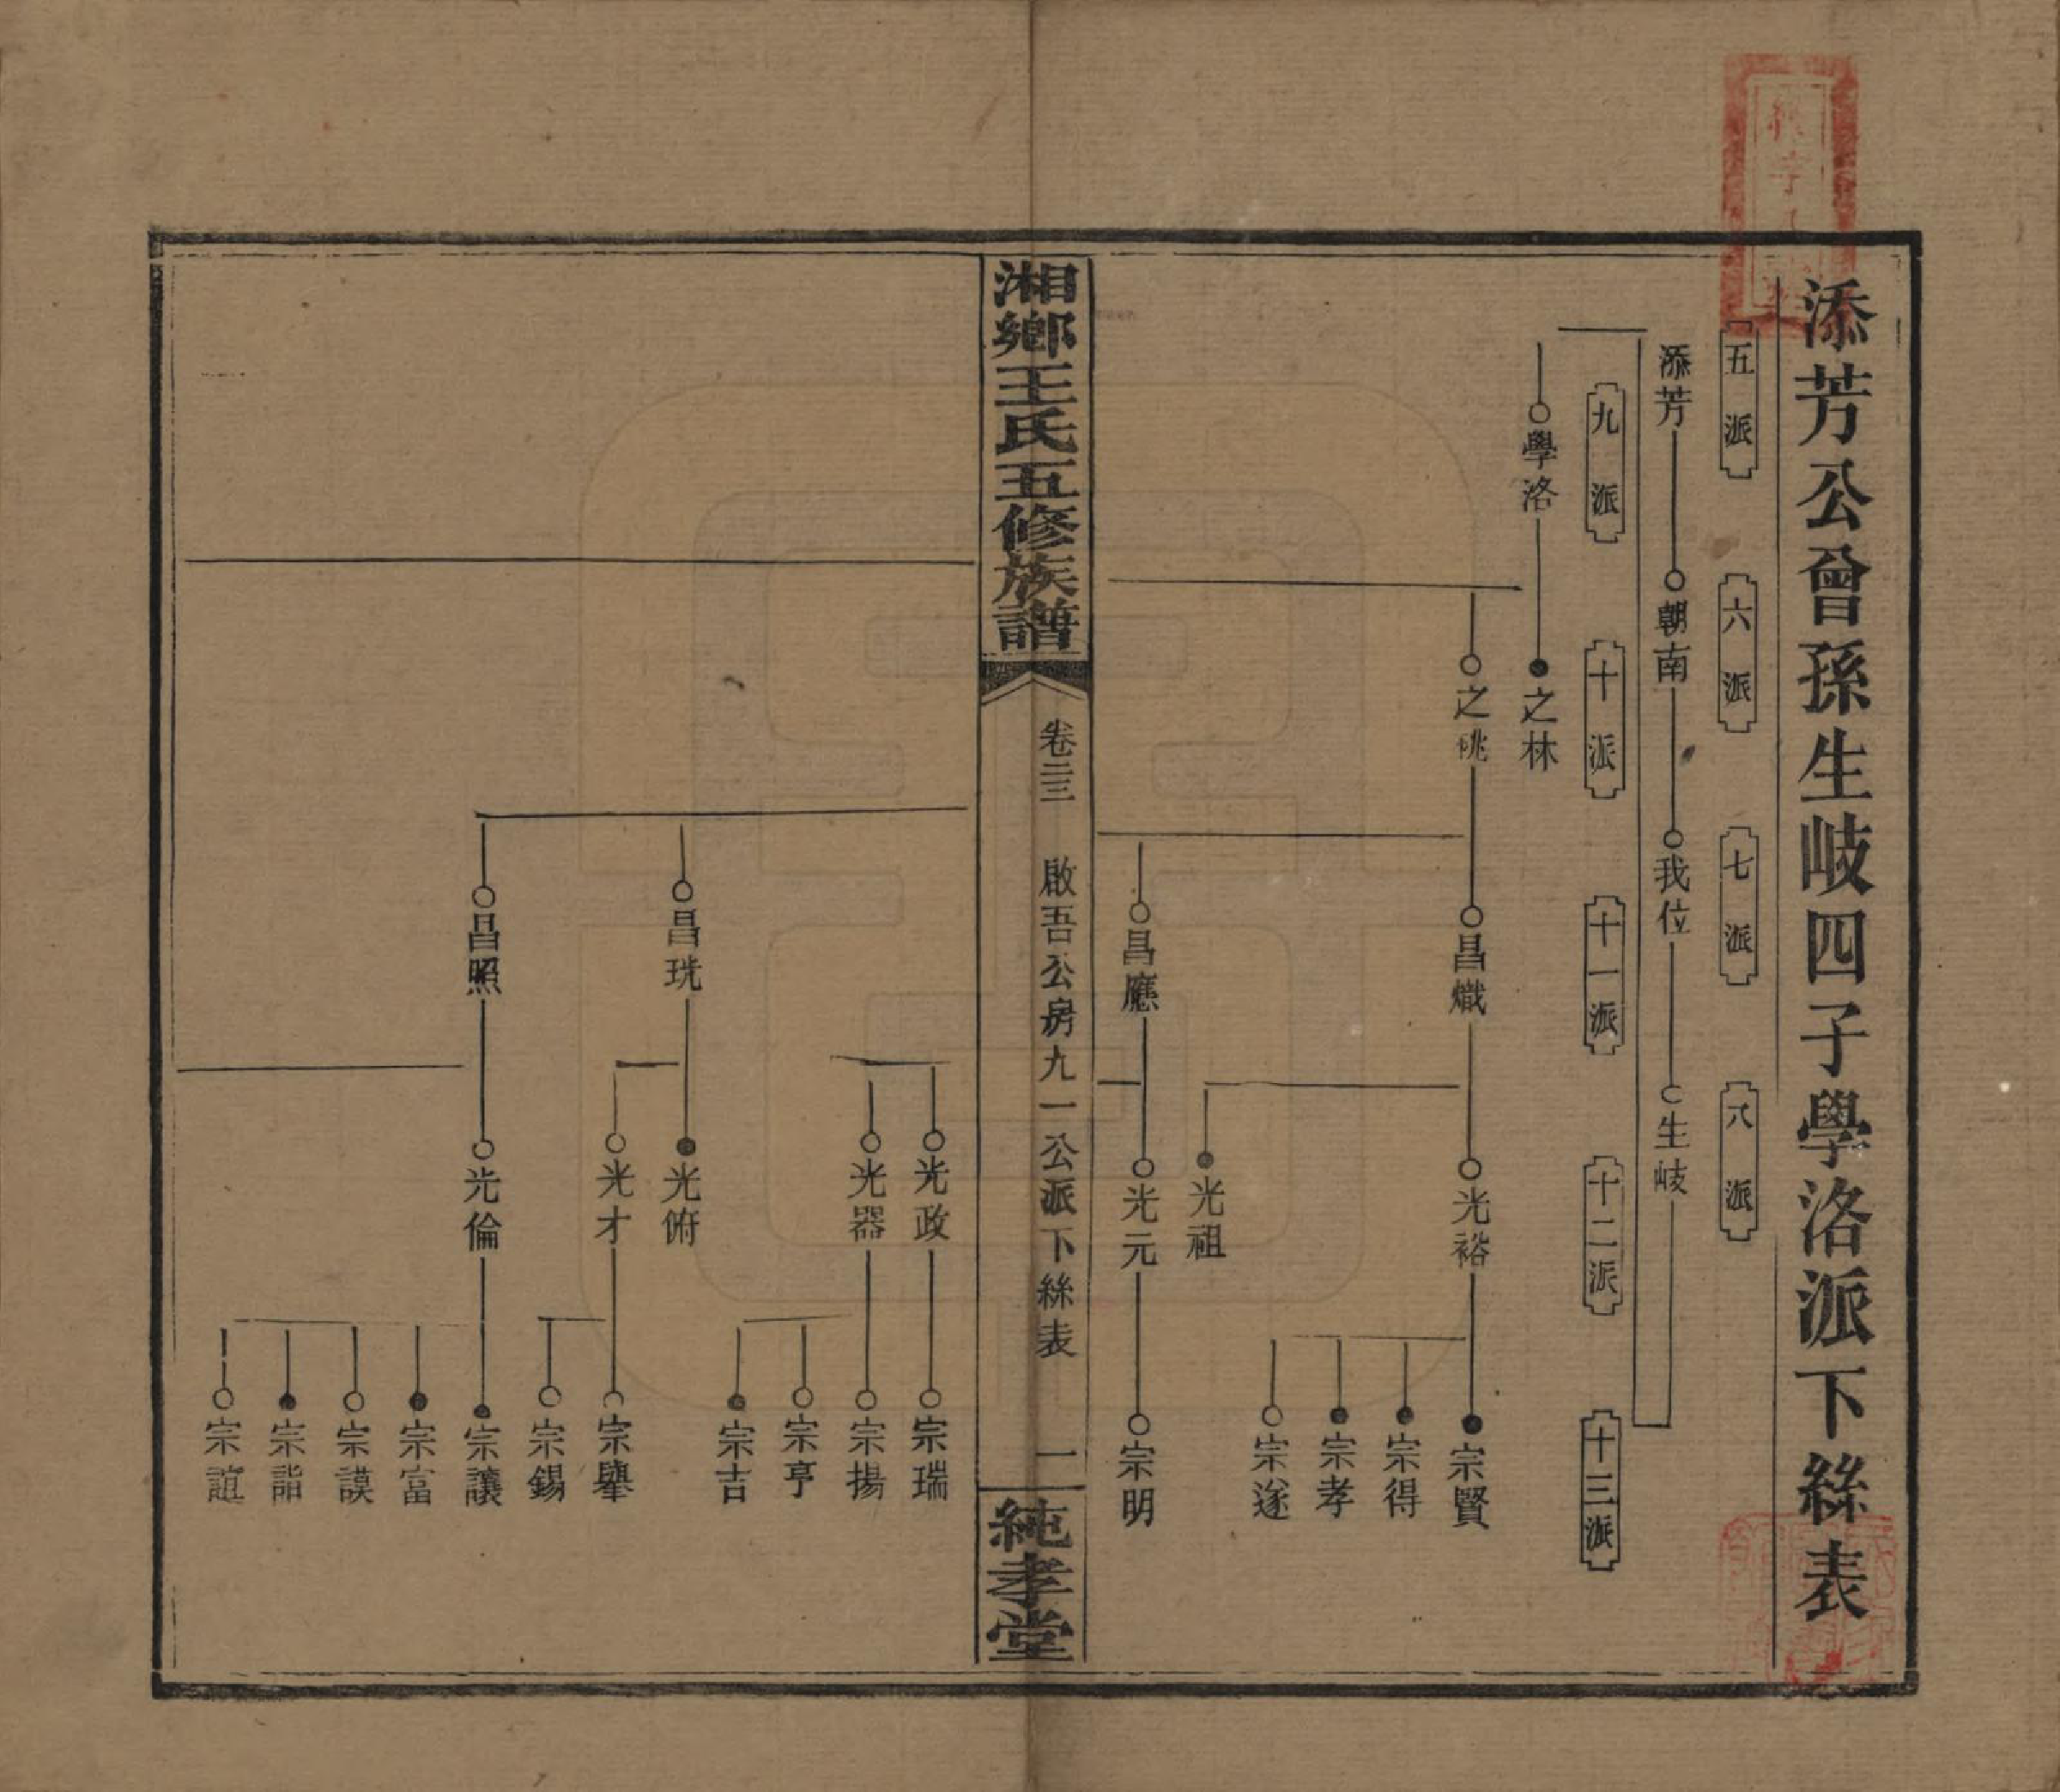 添芳公曾孫生岐四子學洛派下絲表
五派
六派
七派
八派
添芳
朝南
我位
生岐
九派
十派
十一派
十二派
十三派
學洛
之林
之桃
昌熾
光裕
宗賢
宗得
宗孝
宗遂
光祖
昌應
光元
宗明
湘鄉王氏五修族譜
卷二三
啟吾公房九一公派下絲表
一
純孝堂
光政
宗瑞
光器
宗揚
宗亨
宗吉
昌珖
光俯
光才
宗舉
宗錫
昌照
光倫
宗讓
宗富
宗謨
宗詣
宗誼